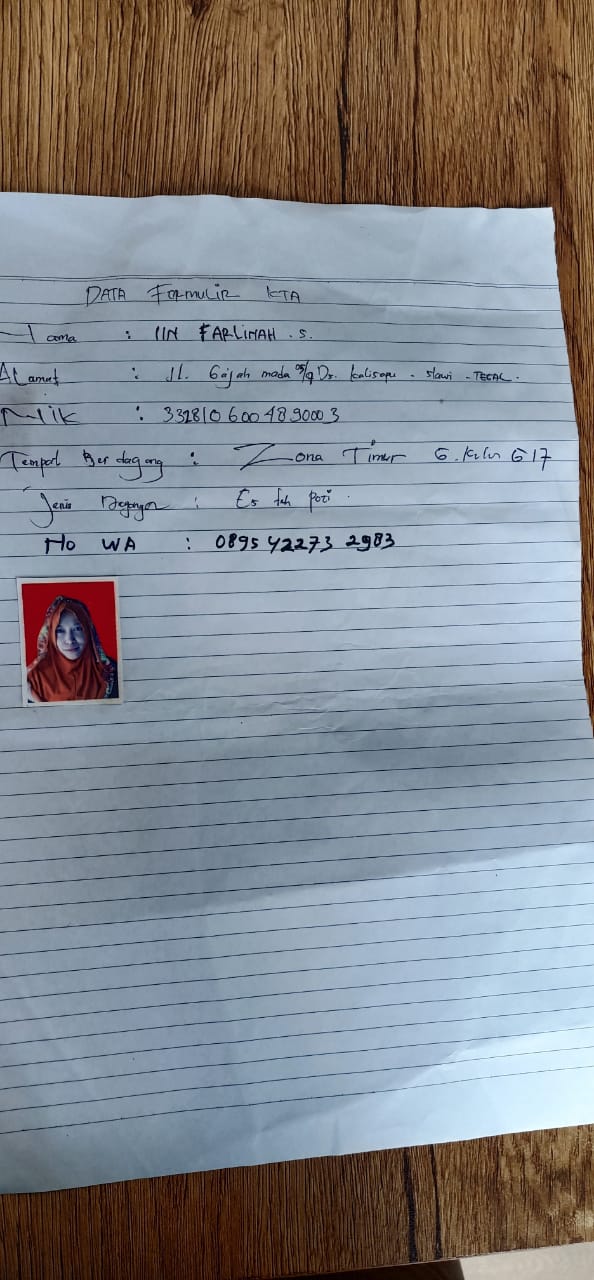 DATA FORMULIR KTA
Nama : IIN FARLIHAH . S.
ALamat : Jl. Gajah mada 05/9 Ds. kalisapu - slawi - TEGAL.
Nik : 3328106004890003
Tempat Berdagang : Zona Timur G. 617
Jenis Dagangan : Es teh poci .
No WA : 0895 42273 2983